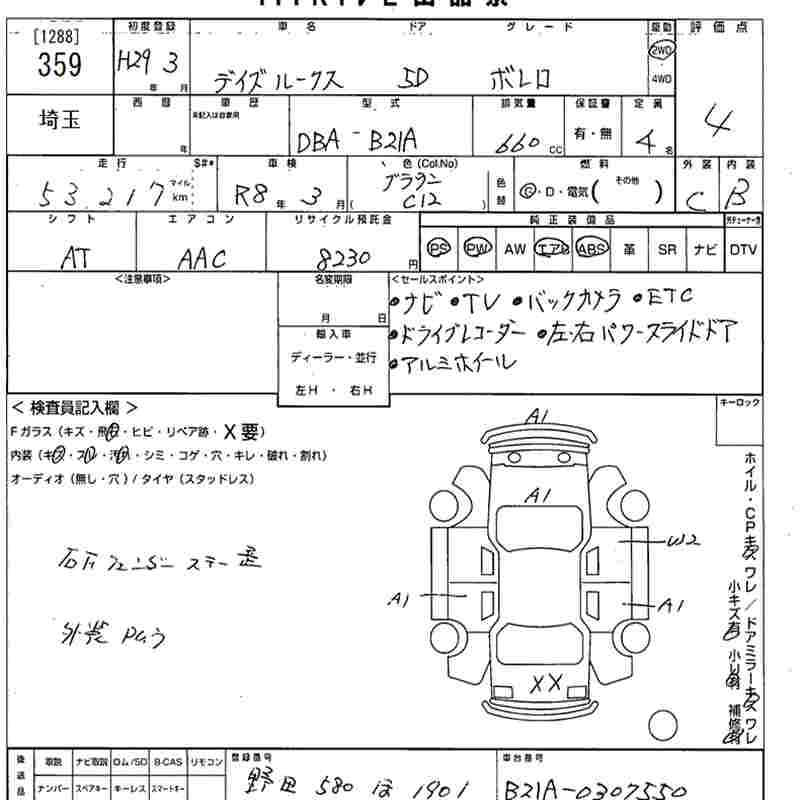 [1288]
359
初度登録
H29 3
年 月
車名 ドア グレード
デイズルークス 5D ボレロ
駆動
2WD
4WD
評価点
4
埼玉
西暦
年
車歴
未記入は自家用
型式
DBA-B21A
排気量
660cc
保証書
有・無
定員
4名
走行
53,217
マイル
km
S#*
車検
R8年 3月
色(Col.No)
ブラウン
( C12 )
色替
燃料
G・D・電気( その他 )
外装
C
内装
B
シフト
AT
エアコン
AAC
リサイクル預託金
8230円
純正装備品
PS PW AW エアB ABS 革 SR ナビ DTV
<注意事項>
名変期限
月 日
輸入車
ディーラー・並行
左H ・ 右H
<セールスポイント>
•ナビ •TV •バックカメラ •ETC
•ドライブレコーダー •左・右パワースライドドア
•アルミホイール
キーロック
< 検査員記入欄 >
Fガラス(キズ・飛石・ヒビ・リペア跡・X要)
内装(キズ・スレ・汚れ・シミ・コゲ・穴・キレ・破れ・割れ)
オーディオ(無し・穴)/タイヤ(スタッドレス)
外装
A1
A1
W2
A1
A1
XX
ホイル・CPキズ ワレ/ドアミラーキズ ワレ
小キズ有 小凹有 補修有
後送品
取説 ナビ取説 ロム/SD B-CAS リモコン
ナンバー スペアキー キーレス スマートキー
登録番号
野田 580 ほ 1901
車台番号
B21A-0307550